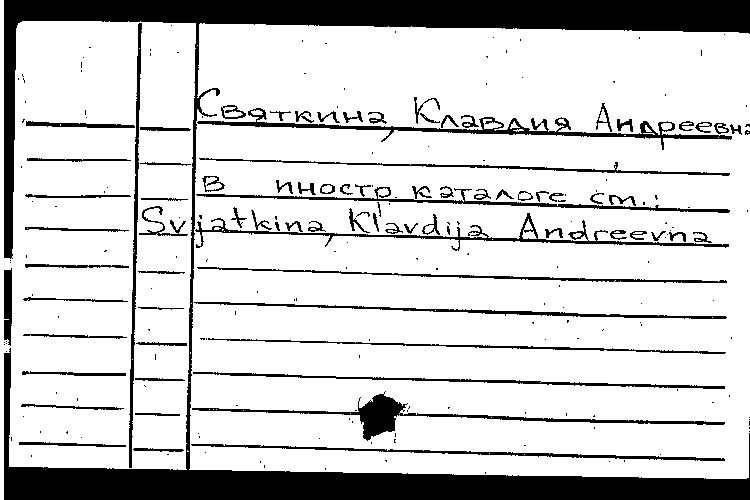 Святкина, Клавдия Андреевна
В иностр. каталоге см.:
Svjatkina, Klavdija Andreevna